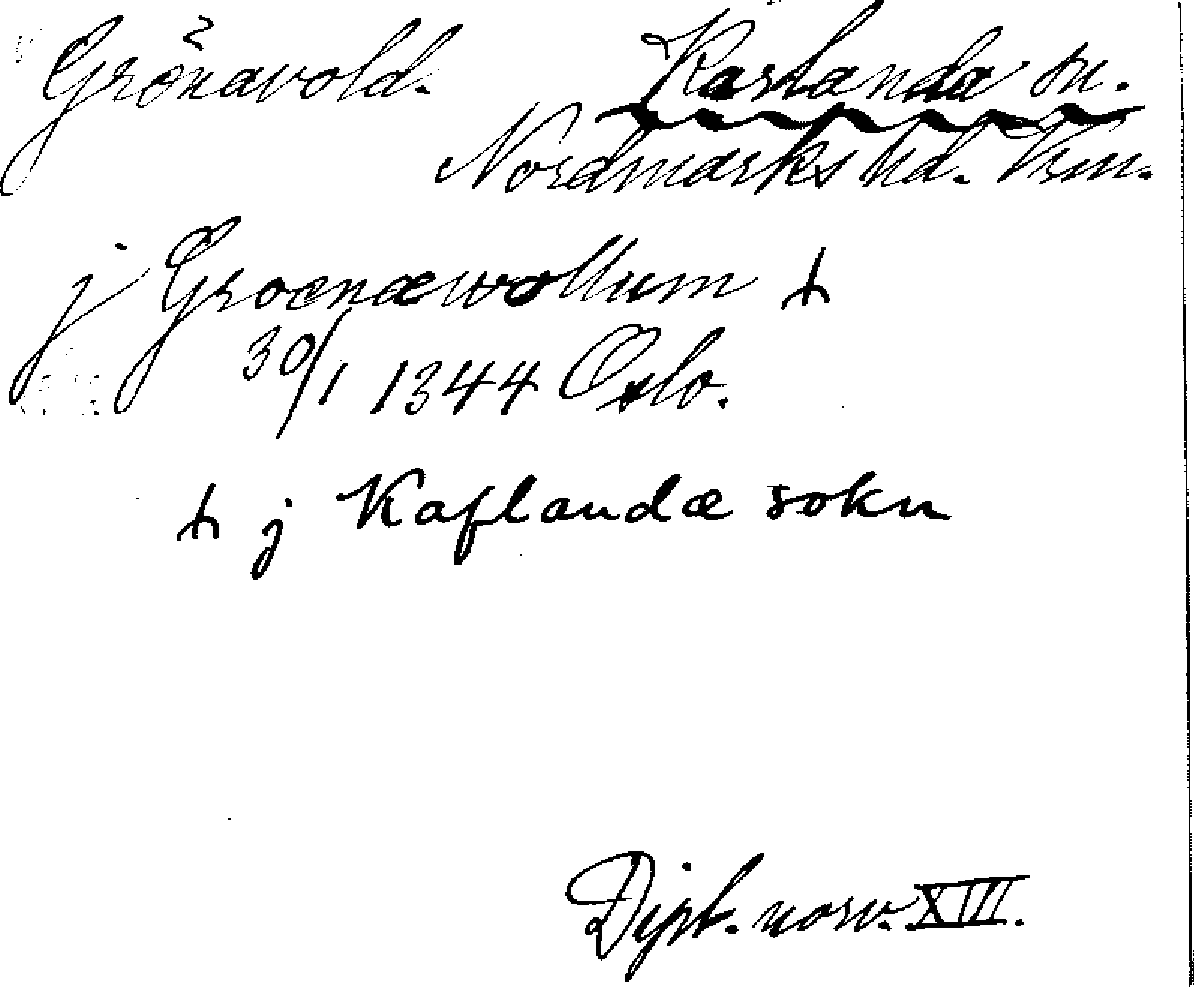 Grönavold. Karlanda sn.
Nordmarks hd. Vrm.
j Groenæwollum
30/1 1344 Oslo.
j Kaflandæ sokn
Dipl. norv. XIII.